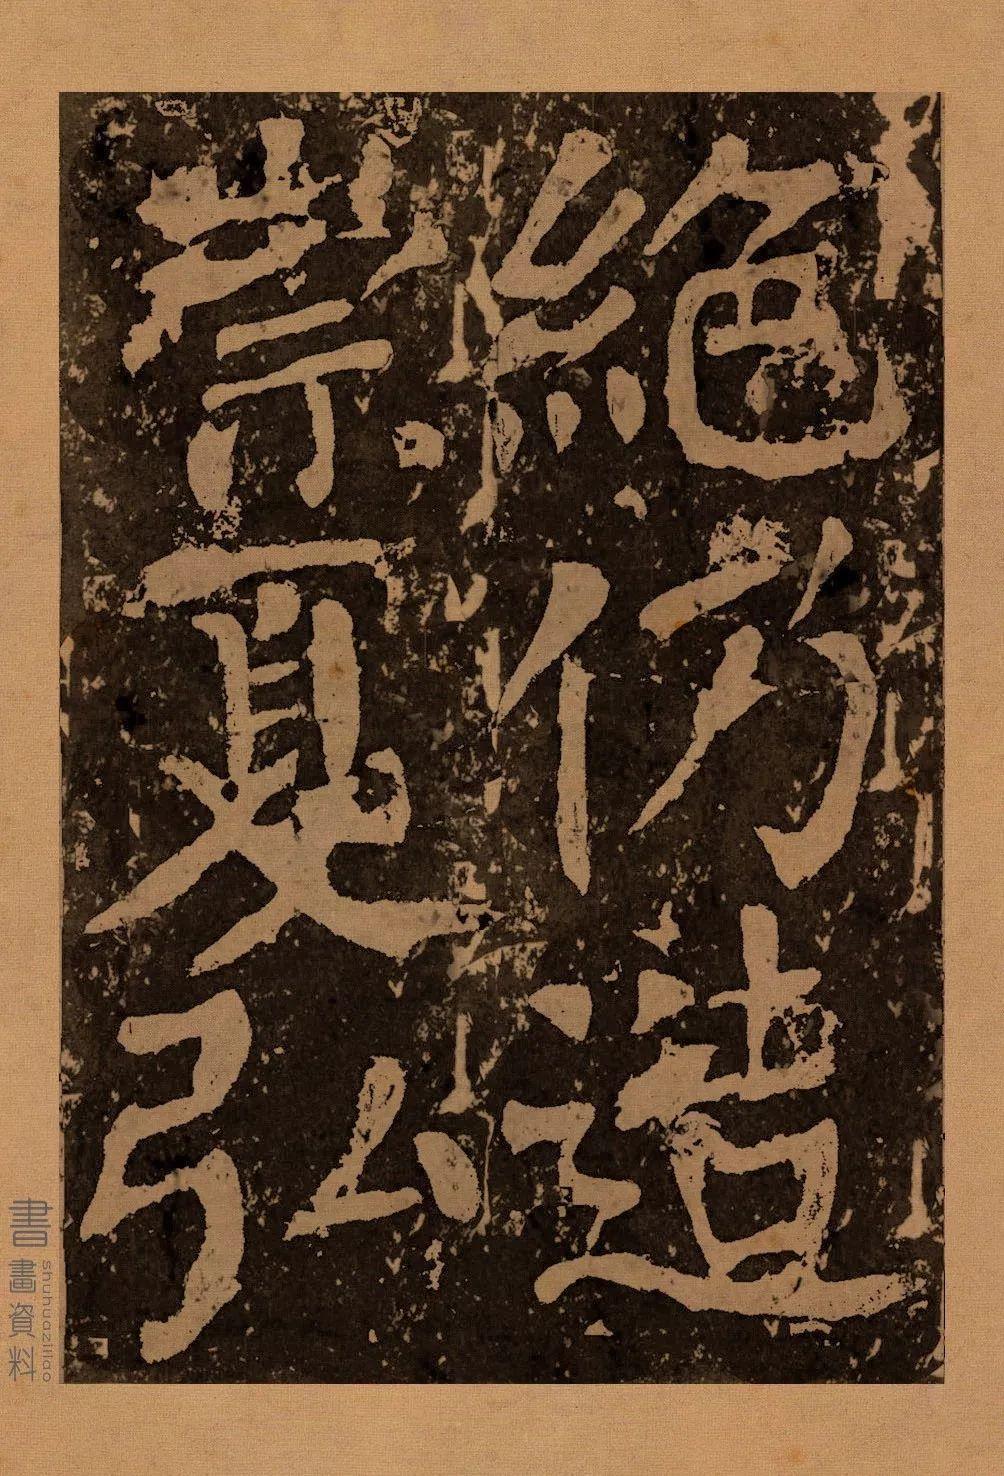 絕仍造
崇夏弘
書畫資料
shuhuaziliao